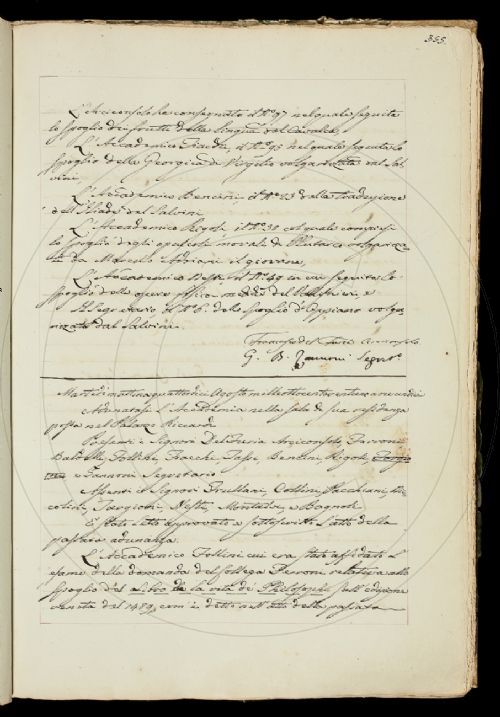 355.
L'Arciconsolo ha consegnato il N.° 97 nel quale seguita
lo spoglio dei frutti della lingua del Cavalca.
L'Accademico Fiacchi, il N.° 95 nel quale seguita lo
spoglio della Georgica di Virgilio volgarizzata dal Sal-
vini.
L'Accademico Bencini il N.° 23 della traduzione
dell'Iliade del Salvini.
L'Accademico Rigoli il N.° 30 col quale compiesi
lo spoglio degli opuscoli morali di Plutarco volgarizza-
ti da Marcello Adriani il giovane,
L'Accademico Nesti il N.° 49 in cui seguita lo
spoglio delle opere fisico-mediche del Vallisnieri, e
Il Segretario il N.° 6. dello spoglio d'Oppiano volga-
rizzato dal Salvini.
Francesco del Furia Arciconsolo
G. B. Zannoni Segret.°
Martedì mattina quattordici Agosto mille ottocento
Adunatasi l'Accademia nella sala di sua residenza
posta nel Palazzo Riccardi
Presenti i Signori Del Furia Arciconsolo, Ferroni
Baldelli, Follini, Fiacchi, Sessi, Bencini, Rigoli,
e Zannoni Segretario
Assenti i Signori Frullani, Collini, Pacchiani, Ni-
colini, Targioni, Nesti, Montalvi, e Bagnoli
È stato letto approvato e sottoscritto l'atto della
passata adunanza.
L'Accademico Follini cui era stato affidato l'
esame della domanda del collega Ferroni relativa allo
spoglio del Libro de la vita de' Philosophi sull'edizione
del 1489, com'è detto nell'atto della passata